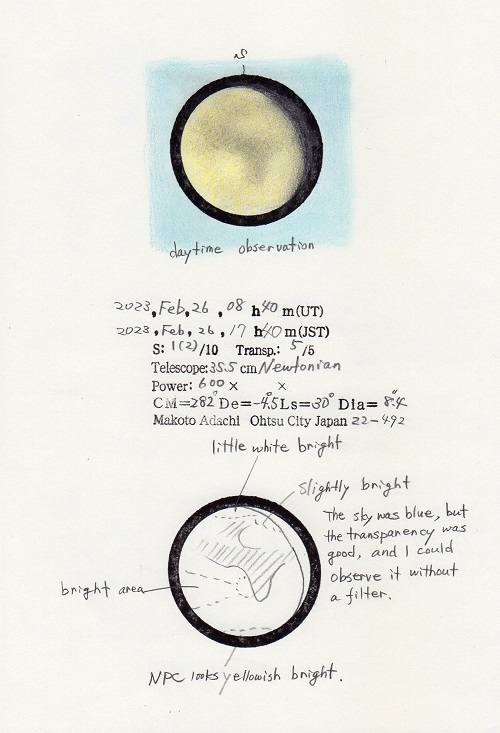 daytime observation
2023, Feb, 26, 08 h 40 m (UT)
2023, Feb, 26, 17 h 40 m (JST)
S: 1(2)/10 Transp.: 5/5
Telescope: 35.5 cm Newtonian
Power: 600 × ×
CM=282° De=-4.5° Ls=30° Dia= 8.4"
Makoto Adachi Ohtsu City Japan 22-492
little white bright
Slightly bright
The sky was blue, but
the transparency was
good, and I could
observe it without
a filter.
bright area
NPC looks yellowish bright.